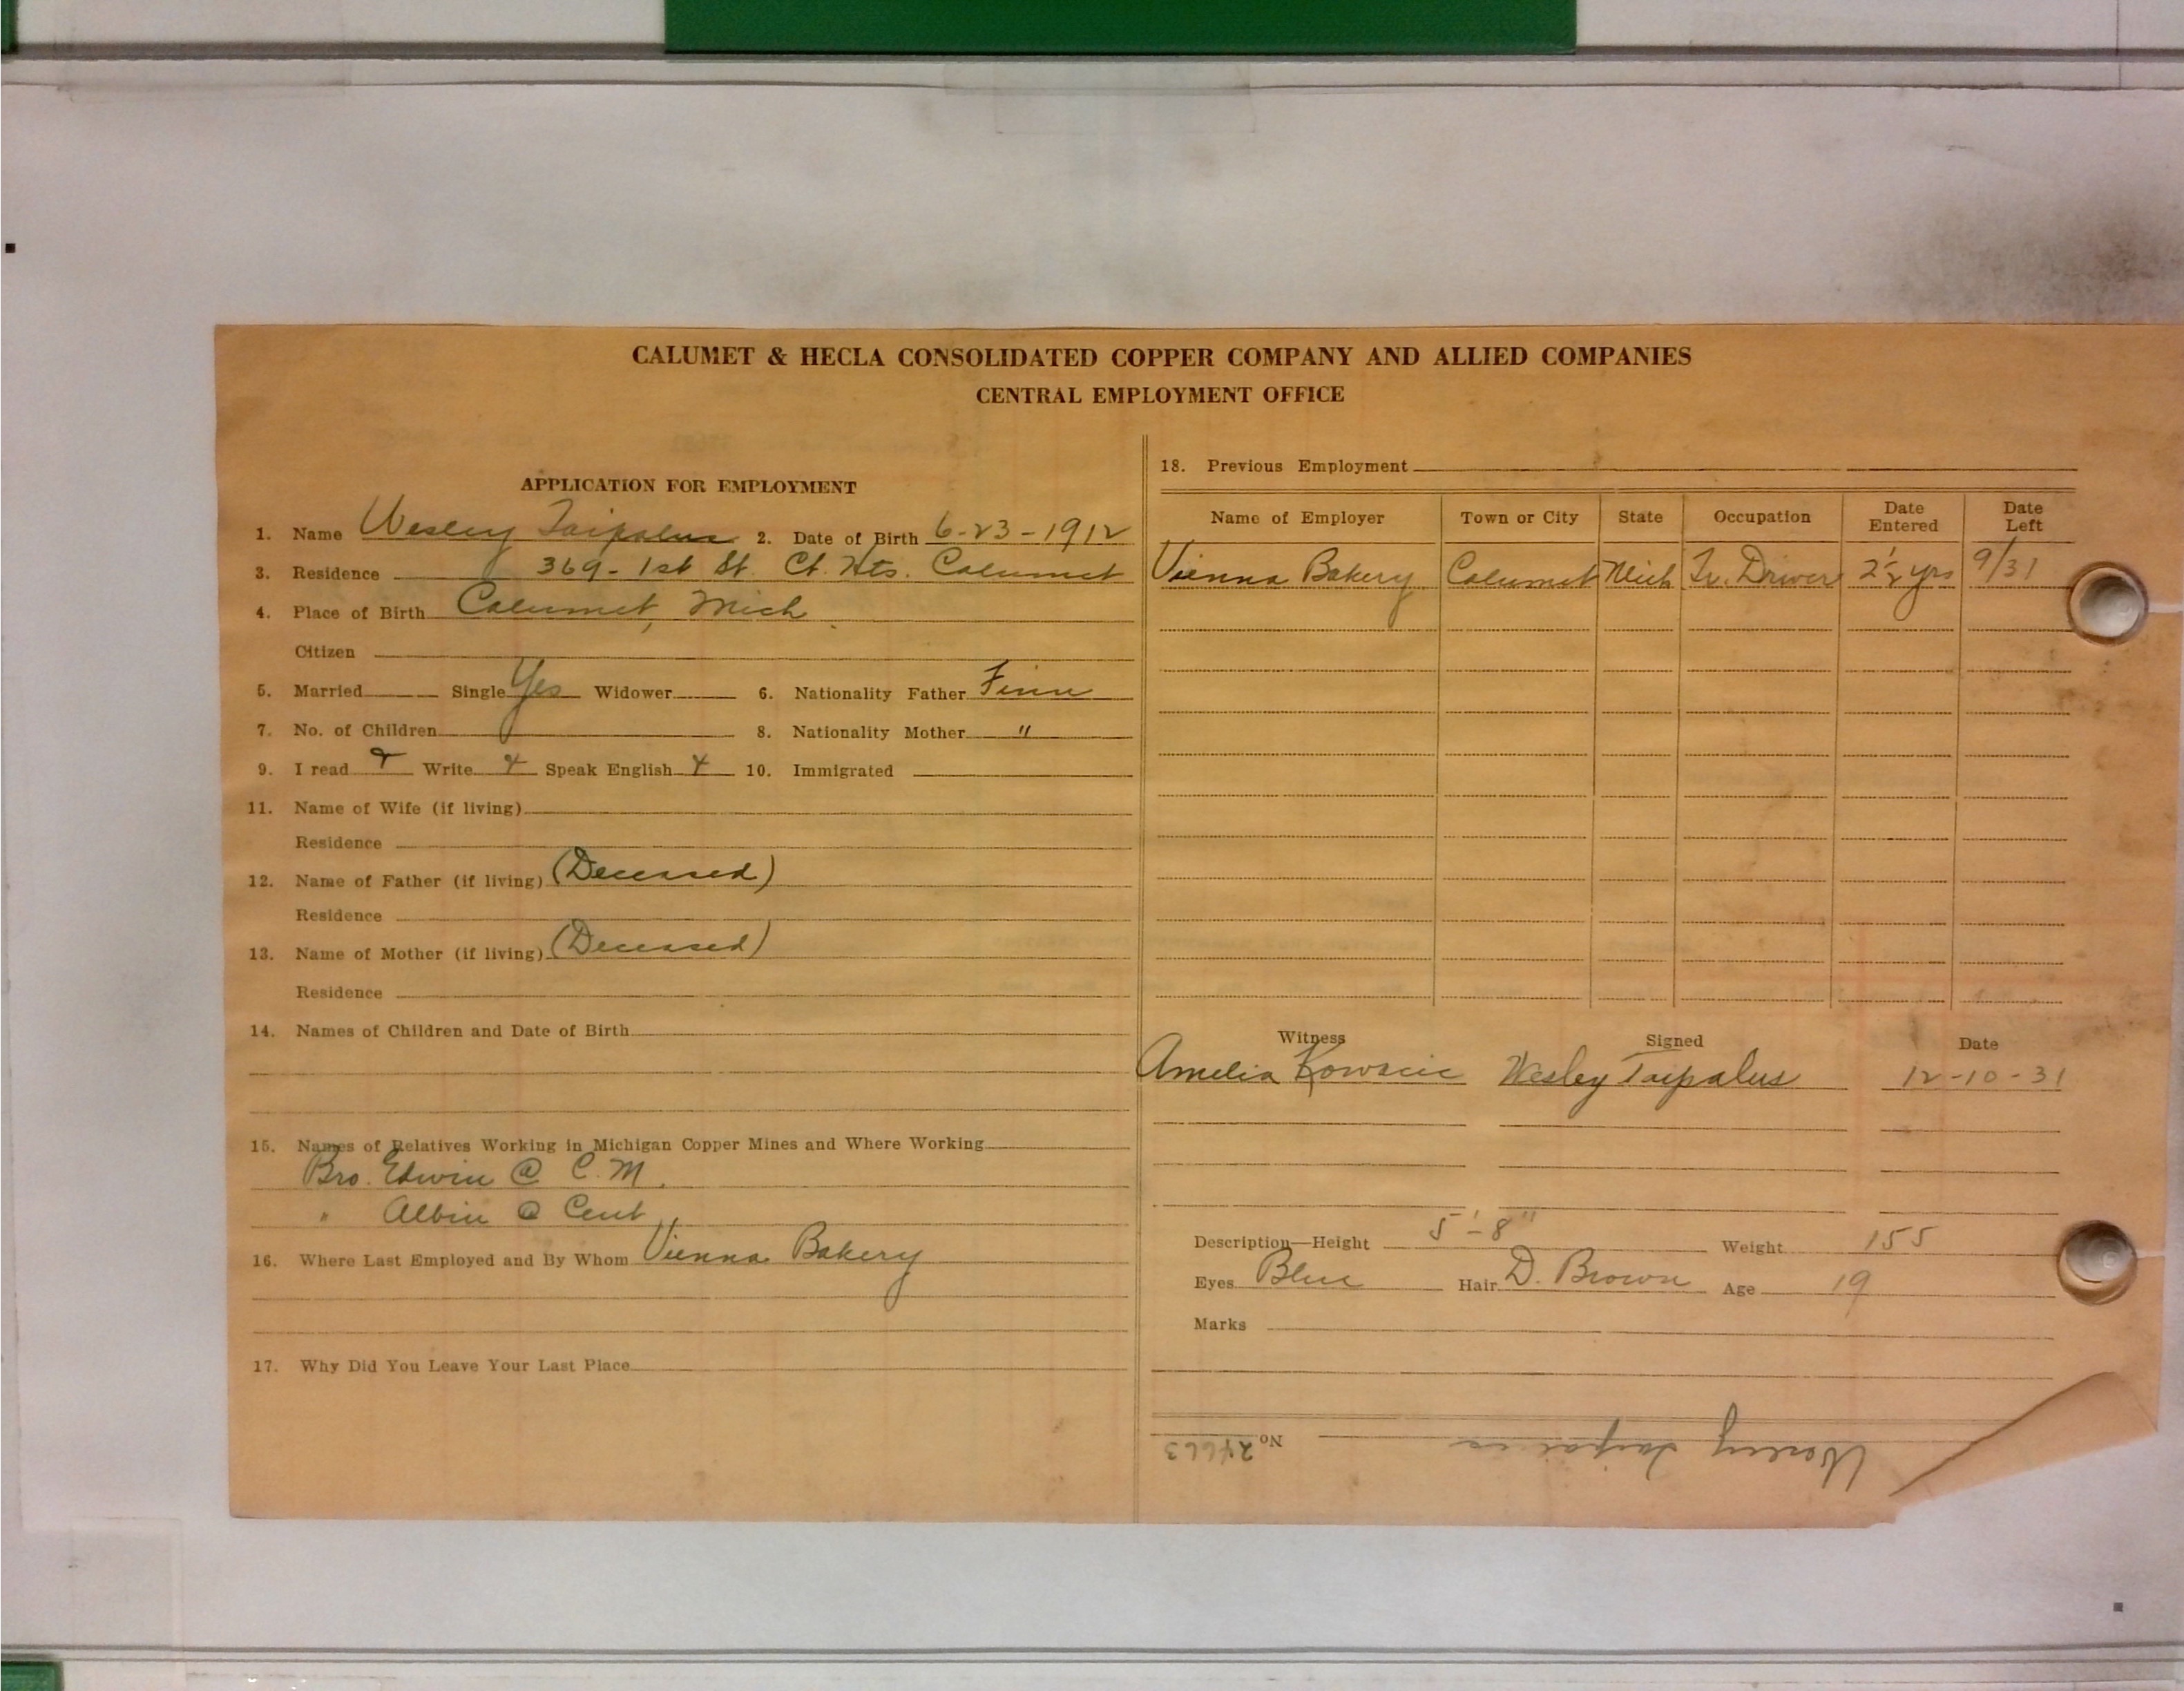 CALUMET & HECLA CONSOLIDATED COPPER COMPANY AND ALLIED COMPANIES
CENTRAL EMPLOYMENT OFFICE
APPLICATION FOR EMPLOYMENT
1. Name Wesley Taipalus 2. Date of Birth 6-23-1912
3. Residence 369- 1st St. Cl. Hts. Calumet
4. Place of Birth Calumet, Mich
Citizen
5. Married Single Yes Widower 6. Nationality Father Finn
7. No. of Children 8. Nationality Mother "
9. I read Write Speak English 10. Immigrated
11. Name of Wife (if living)
Residence
12. Name of Father (if living) (Deceased)
Residence
13. Name of Mother (if living) (Deceased)
Residence
14. Names of Children and Date of Birth
15. Names of Relatives Working in Michigan Copper Mines and Where Working
Bro. Edwin @ C. M.
" Albin @ Cent
16. Where Last Employed and By Whom Vienna Bakery
17. Why Did You Leave Your Last Place
18. Previous Employment
Name of Employer Town or City State Occupation Date Entered Date Left
Vienna Bakery Calumet Mich Tr. Driver 2½ yrs 9/31
Witness Signed Date
Amelia Wesley Taipalus 12-10-31
Description—Height 5'-8" Weight 155
Eyes Blue Hair D. Brown Age 19
Marks
No. Wesley Taipalus